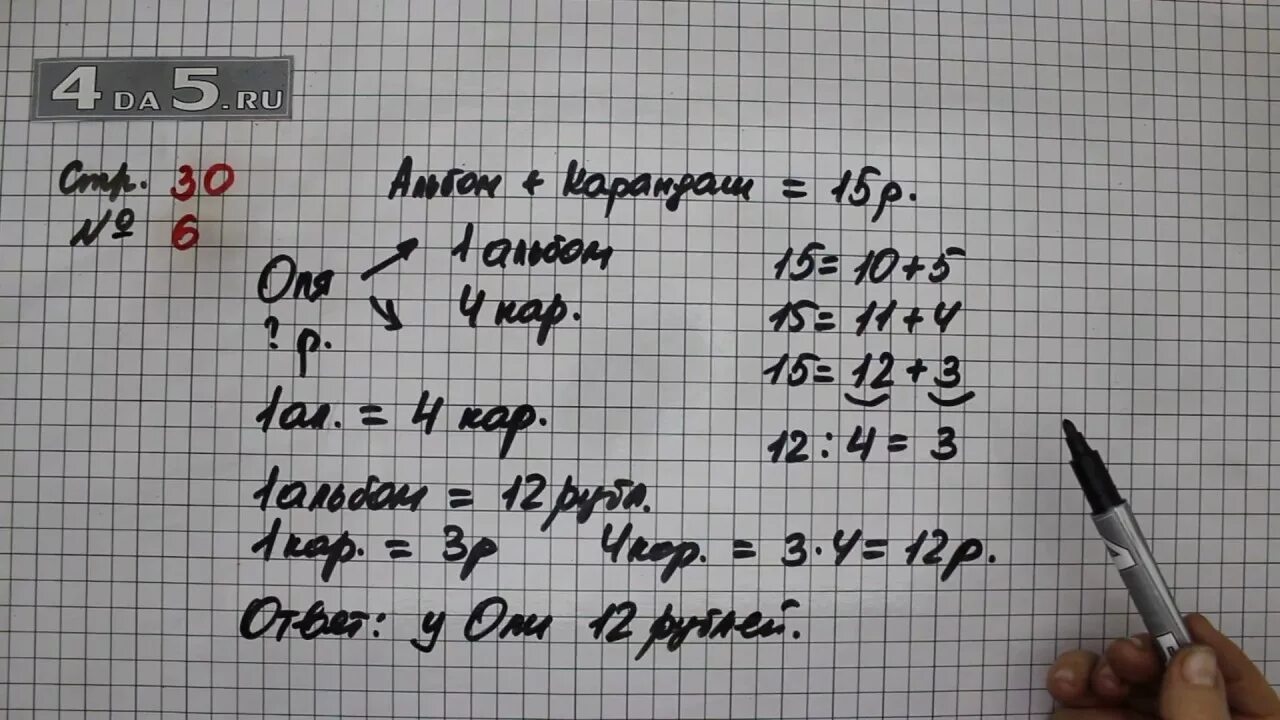 4 DA 5.RU
Стр. 30
№ 6
Альбом + Карандаш = 15р.
Оля
1 альбом
4 кар.
? р.
15 = 10 + 5
15 = 11 + 4
15 = 12 + 3
12 : 4 = 3
1 ал. = 4 кар.
1 альбом = 12 рубл.
1 кар. = 3р
4 кар. = 3 · 4 = 12р.
Ответ: у Оли 12 рублей.